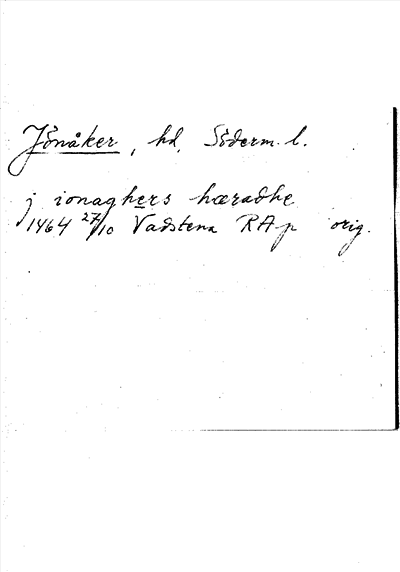 Jönåker, hd, Söderm. l.
j ionaghers hæradhe
1464 27/10 Vadstena RAp orig.